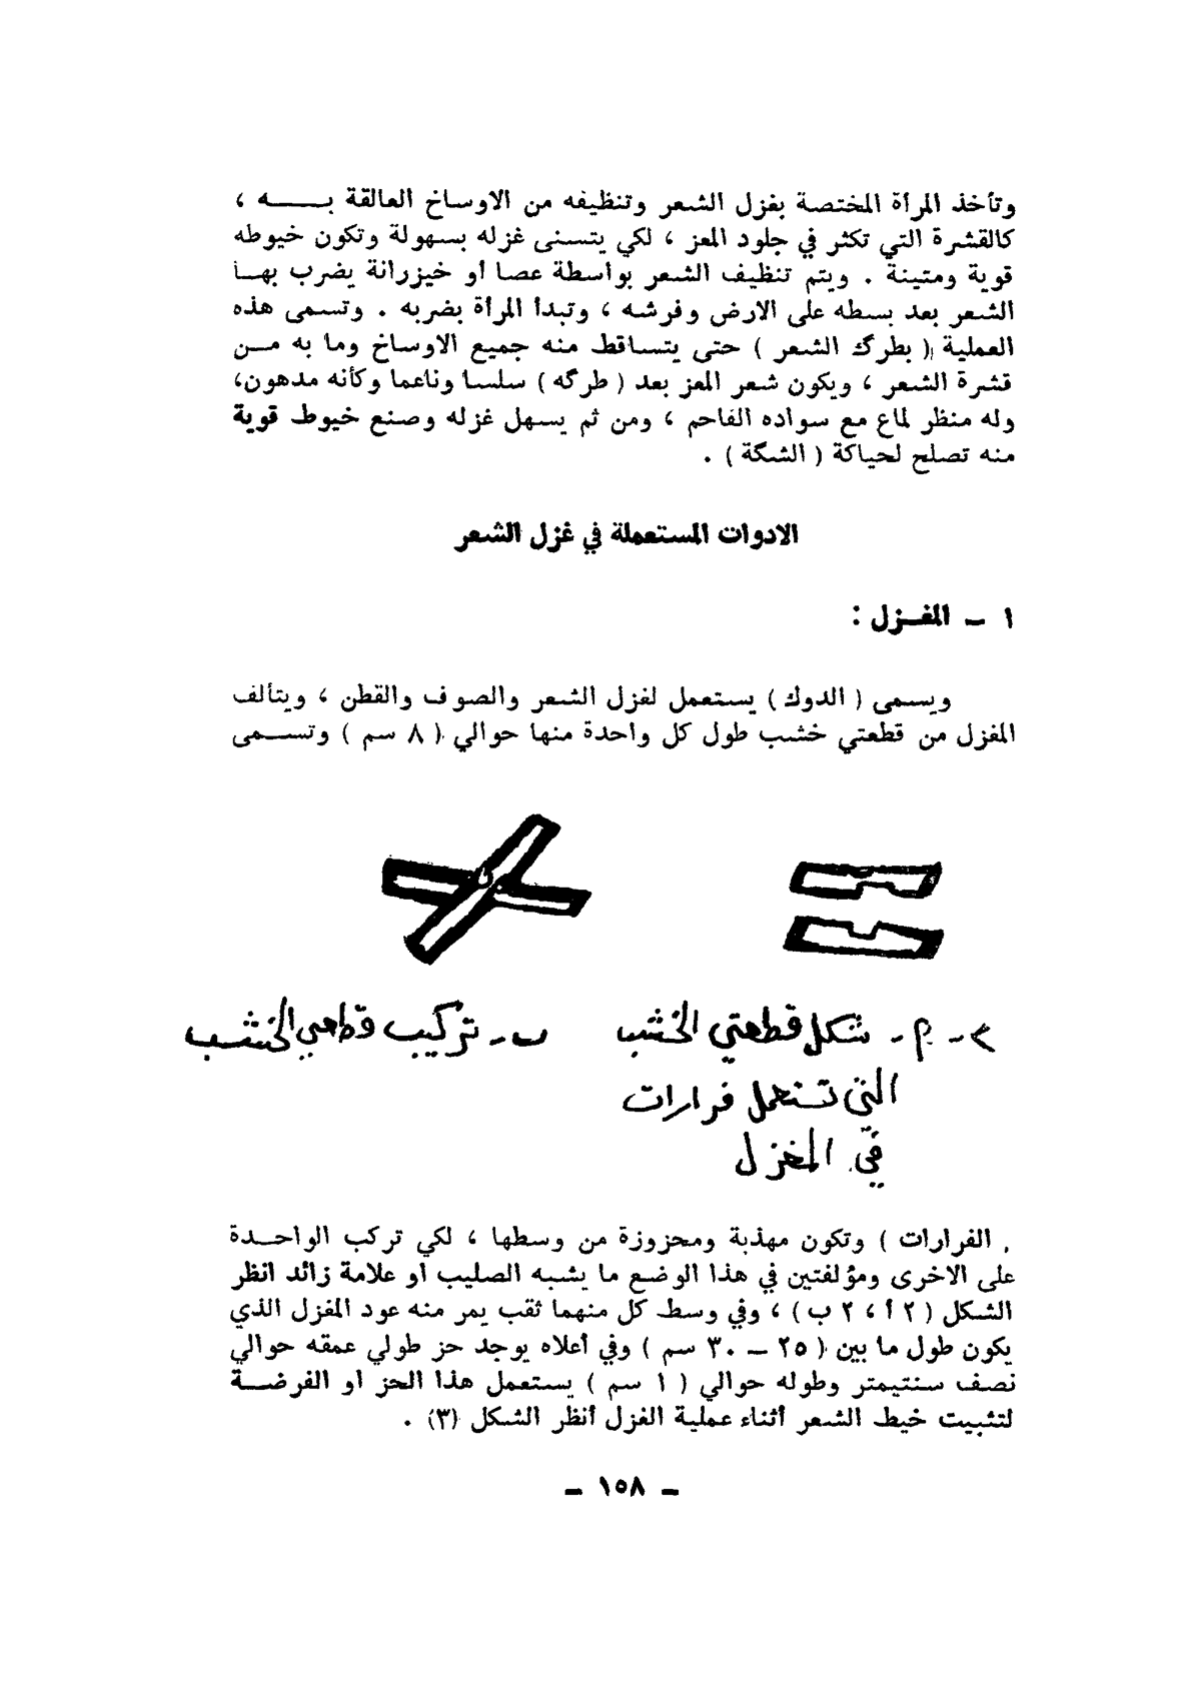 وتأخذ المرأة المختصة بغزل الشعر وتنظيفه من الاوساخ العالقة بـــــه ،
كالقشرة التي تكثر في جلود المعز ، لكي يتسنى غزله بسهولة وتكون خيوطه
قوية ومتينة . ويتم تنظيف الشعر بواسطة عصا أو خيزرانة يضرب بهـا
الشعر بعد بسطه على الارض وفرشه ، وتبدأ المرأة بضربه . وتسمى هذه
العملية ( بطرگ الشعر ) حتى يتساقط منه جميع الاوساخ وما به مــن
قشرة الشعر ، ويكون شعر المعز بعد ( طرگه ) سلسا وناعما وكأنه مدهون،
وله منظر لماع مع سواده الفاحم ، ومن ثم يسهل غزله وصنع خيوط قوية
منه تصلح لحياكة ( الشگة ) .
الادوات المستعملة في غزل الشعر
١ - المغــزل :
ويسمى ( الدوك ) يستعمل لغزل الشعر والصوف والقطن ، ويتألف
المغزل من قطعتي خشب طول كل واحدة منها حوالي ( ٨ سم ) وتســمى
٢ - أ - شكل قطعتي الخشب
التي تستعمل فرارات
في المغزل
ب - تركيب قطعتي الخشب
. الفرارات ) وتكون مهذبة ومحزوزة من وسطها ، لكي تركب الواحــدة
على الاخرى ومؤلفتين في هذا الوضع ما يشبه الصليب او علامة زائد انظر
الشكل ( ٢ أ ، ٢ ب ) ، وفي وسط كل منهما ثقب يمر منه عود المغزل الذي
يكون طول ما بين ( ٢٥ - ٣٠ سم ) وفي أعلاه يوجد حز طولي عمقه حوالي
نصف سنتيمتر وطوله حوالي ( ١ سم ) يستعمل هذا الحز او الفرضــة
لتثبيت خيط الشعر أثناء عملية الغزل أنظر الشكل (٣) .
- ١٥٨ -